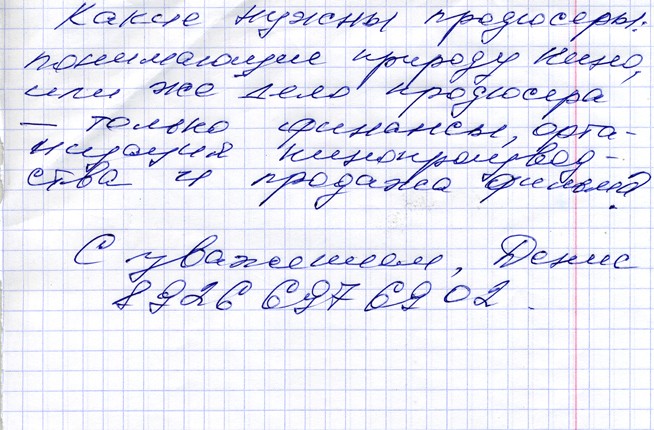 Какие нужны продюсеры:
понимающие природу кино,
или же дело продюсера
— только финансы, орга-
низация кинопроизвод-
ства и продажа фильма?
С уважением, Денис
8926 697 69 02.